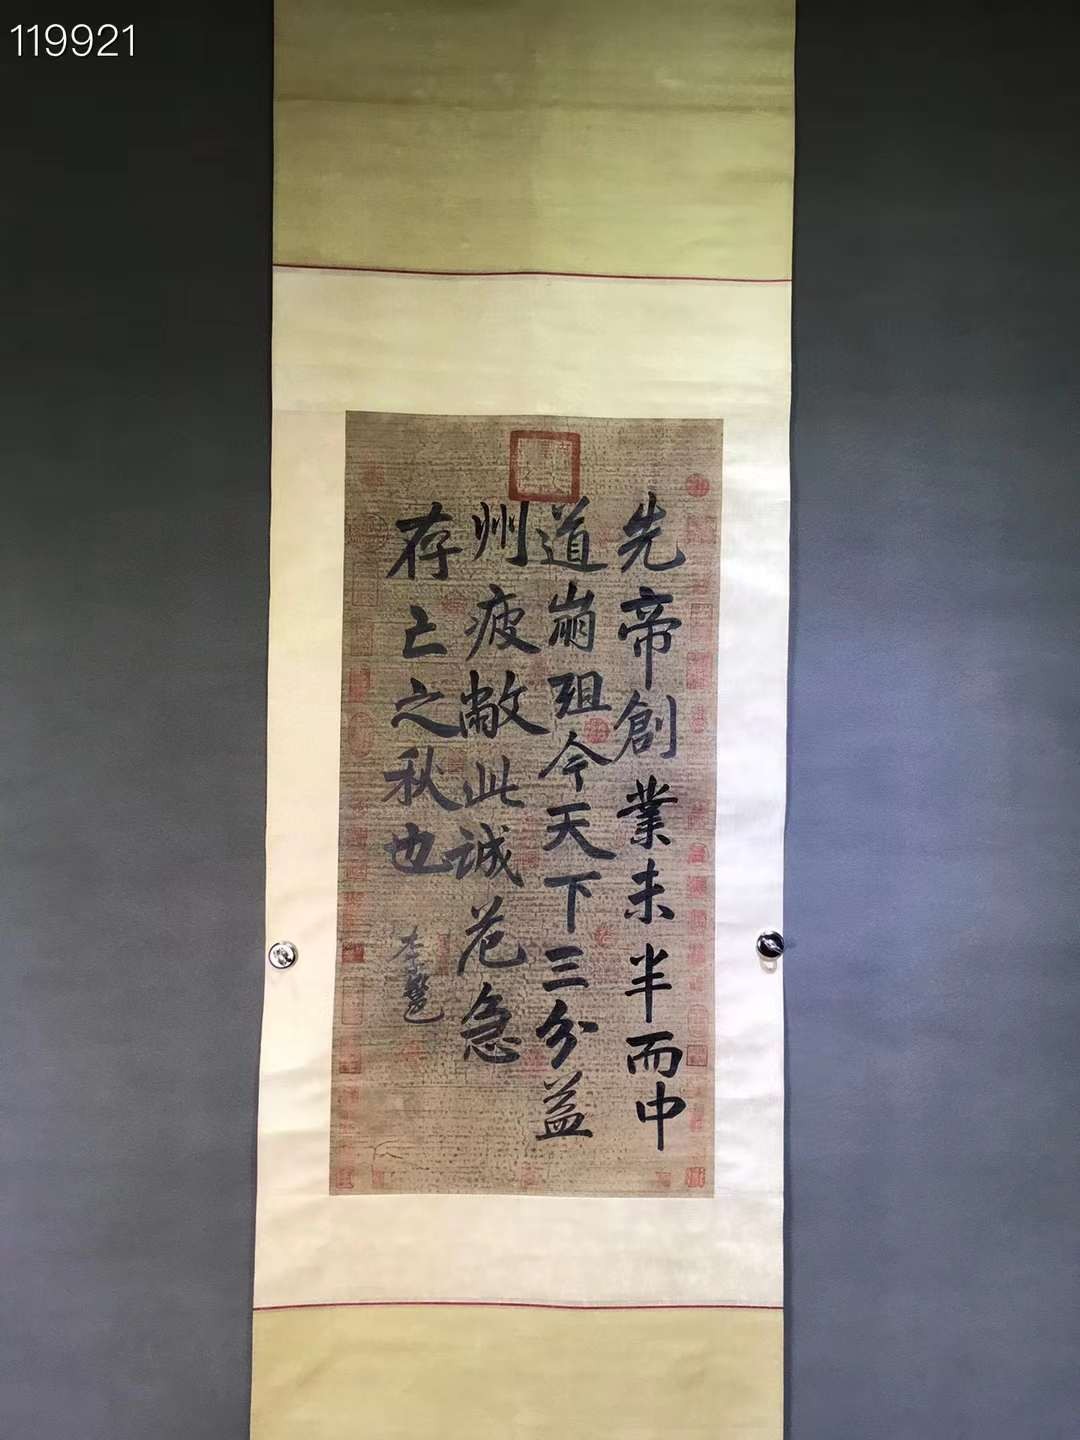 119921
先帝創業未半而中
道崩殂今天下三分益
州疲敝此诚危急
存亡之秋也
李邕